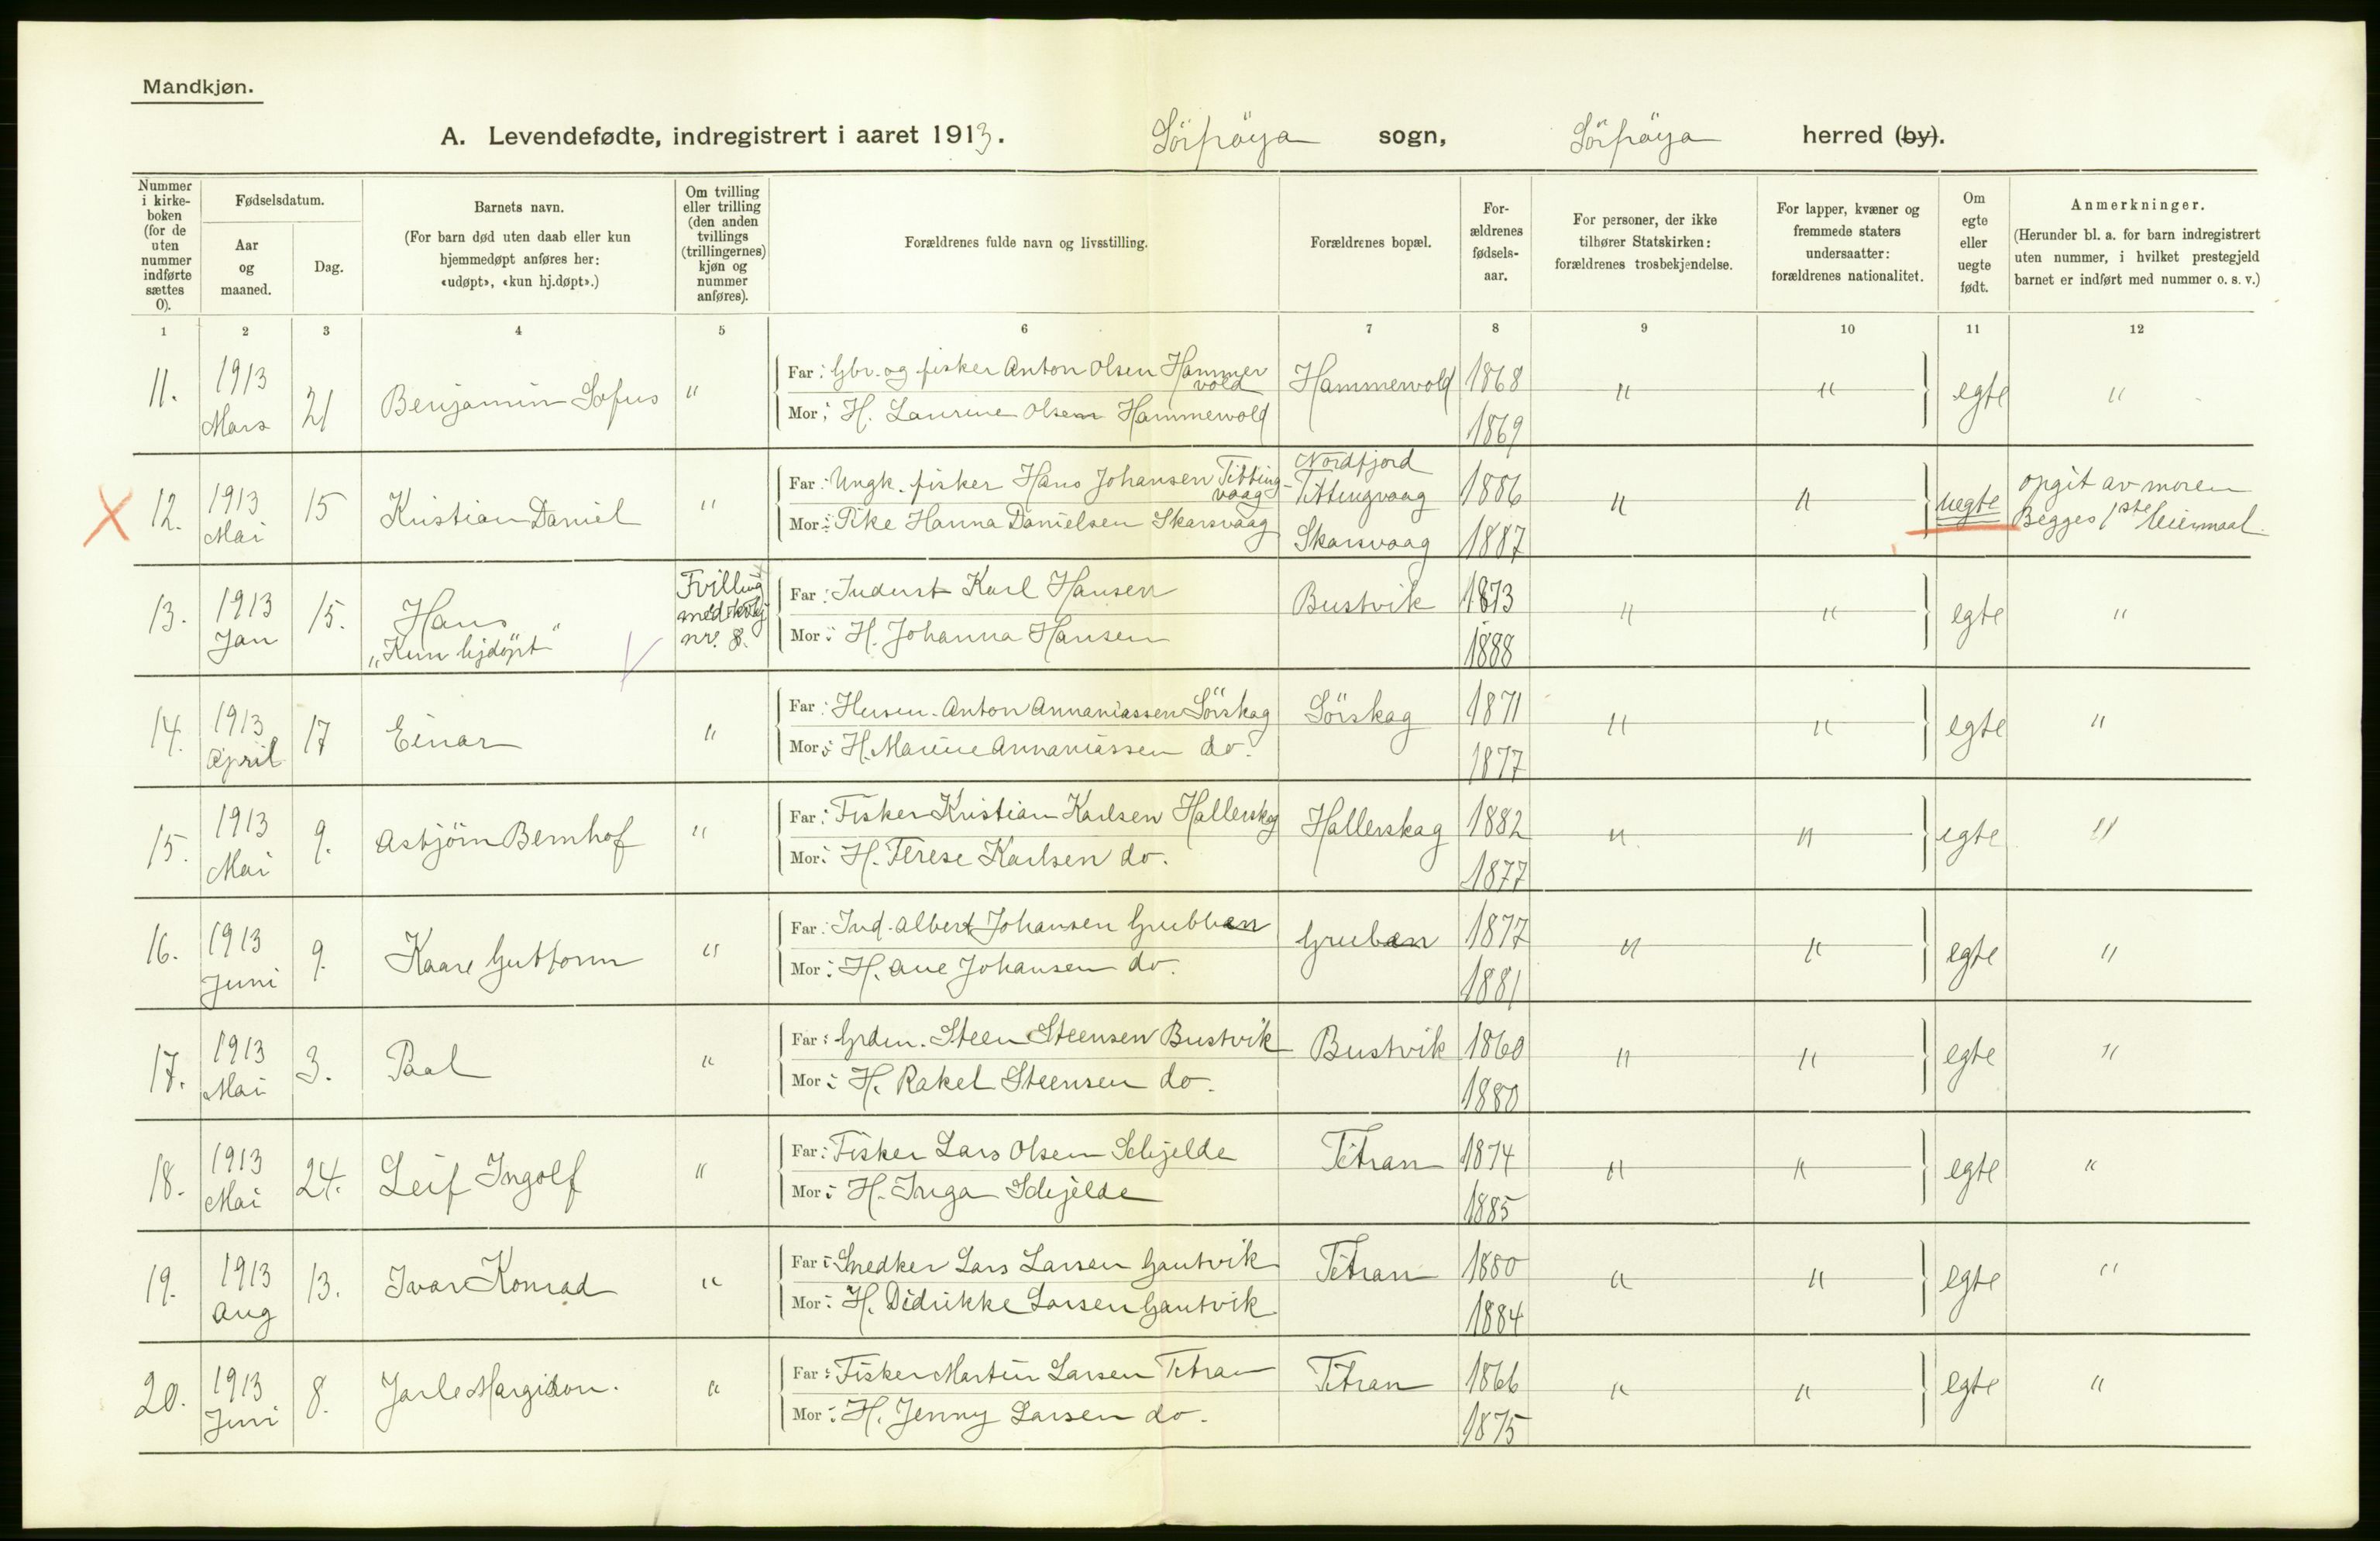 Mandkjøn.
A. Levendefødte, indregistrert i aaret 1913. Sörfröya sogn, Sörfröya herred (by).
Nummer i kirke-boken (for de uten nummer indførte sættes 0).
Fødselsdatum.
Aar og maaned.
Dag.
Barnets navn.
(For barn død uten daab eller kun hjemmedøpt anføres her: «udøpt», «kun hj.døpt».)
Om tvilling eller trilling (den anden tvillings (trillingernes) kjøn og nummer anføres).
Forældrenes fulde navn og livsstilling.
Forældrenes bopæl.
For-ældrenes fødsels-aar.
For personer, der ikke tilhører Statskirken: forældrenes trosbekjendelse.
For lapper, kvæner og fremmede staters undersaatter: forældrenes nationalitet.
Om egte eller uegte født.
Anmerkninger.
(Herunder bl. a. for barn indregistrert uten nummer, i hvilket prestegjeld barnet er indført med nummer o. s. v.)
1 2 3 4 5 6 7 8 9 10 11 12
11. 1913 Mars 21 Benjamin Sofus " Far: Gbr. og fisker Anton Olsen Hammervold Hammervold 1868 " " egte "
Mor: H. Laurine Olsen Hammervold 1869
X 12. 1913 Mai 15 Kristian Daniel " Far: Ungk. fisker Hans Johansen Titting-vaag Nordfjord Tittingvaag 1886 " " uegte opgit av moren
Mor: Pike Hanna Danielsen Skarsvaag Skarsvaag 1887 Begges 1ste leiermaal
13. 1913 Jan 15. Hans "Kun hjdöpt" Tvilling med kvkj nr. 8. Far: Inderst Karl Hansen Bustvik 1873 " " egte "
Mor: H. Johanna Hansen 1888
14. 1913 April 17 Einar " Far: Husm. Anton Annaniassen Sörskag Sörskag 1871 " " egte "
Mor: H. Marine Annaniassen do. 1877
15. 1913 Mai 9. Asbjörn Bernhof " Far: Fisker Kristian Karlsen Hallerskag Hallerskag 1882 " " egte "
Mor: H. Terese Karlsen do. 1877
16. 1913 Juni 9. Kaare Guttorm " Far: Ind. Albert Johansen Grubben Gruben 1877 " " egte "
Mor: H. Ane Johansen do. 1881
17. 1913 Mai 3. Paal " Far: Grdm. Steen Steensen Bustvik Bustvik 1860 " " egte "
Mor: H. Rakel Steensen do. 1880
18. 1913 Mai 24. Leif Ingolf " Far: Fisker Lars Olsen Schjelde Titran 1874 " " egte "
Mor: H. Inga Schjelde 1885
19. 1913 Aug 13. Ivar Konrad " Far: Snedker Lars Larsen Gautvik Titran 1880 " " egte "
Mor: H. Didrikke Larsen Gautvik 1884
20. 1913 Juni 8. Jarle Margidon. " Far: Fisker Martin Larsen Titran Titran 1866 " " egte "
Mor: H. Jenny Larsen do. 1875